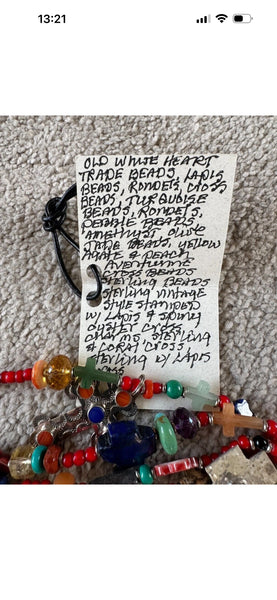 13:21
OLD WHITE HEART
TRADE BEADS, LAPIS
BEADS, RONDELS, CROSS
BEADS, TURQUOISE
BEADS, RONDELS,
PEBBLE BEADS,
AMETHYST OLIVE
JADE BEADS, YELLOW
AGATE & PEACH
AVENTURINE
CROSS BEADS
STERLING BEADS
STERLING VINTAGE
STYLE STAMPED
W/ LAPIS & SPINY
OYSTER CROSS
CHARMS, STERLING
& CORAL CROSS,
STERLING W/ LAPIS